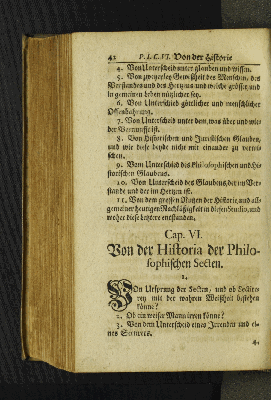 42 P. I. C. VI. Von der Historie
4. Von Unterscheid unter glauben und wissen.
5. Von zweyerley Gewißheit des Menschen, des
Verstandes und des Hertzens und welche grösser und
in gemeinen leben nützlicher sey.
6. Von Unterschied göttlicher und menschlicher
Offenbahrung.
7. Von Unterscheid unter dem, was über und wieder
der Vernunfft ist.
8. Von Historischen und Juristischen Glauben,
und wie diese beyde nicht mit einander zu verwischen.
9. Vom Unterschied des Philosophischen und Historischen
Glaubens.
10. Von Unterscheid des Glaubens, der im Verstande
und der im Hertzen ist.
11. Von dem grossen Nutzen der Historie, und allgemeiner
heutigen Nachläßigkeit in diesen Studio, und
woher diese letztere entstanden.
Cap. VI.
Von der Historia der Philosophischen
Secten.
1.
Von Ursprung der Secten, und ob Sectirerey
mit der wahren Weißheit bestehen
könne?
2. Ob ein weiser Mann irren könne?
3. Von dem Unterscheid eines Irrenden und eines
4.